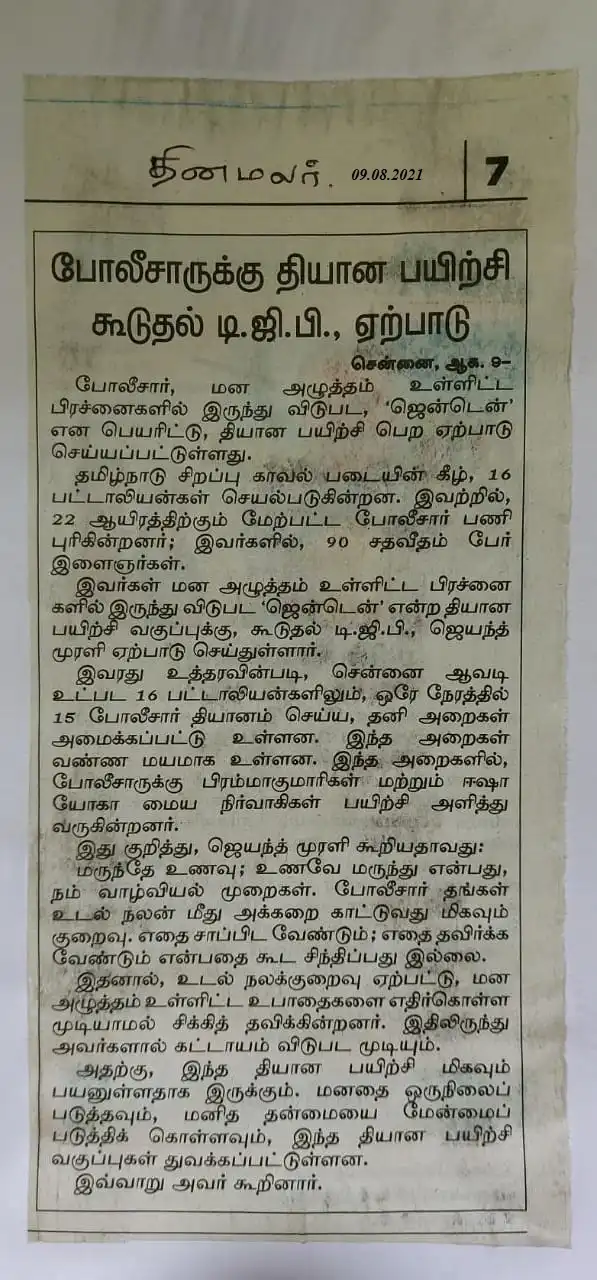 தினமலர். 09.08.2021 7
போலீசாருக்கு தியான பயிற்சி
கூடுதல் டி.ஜி.பி., ஏற்பாடு
சென்னை, ஆக. 9–
போலீசார், மன அழுத்தம் உள்ளிட்ட
பிரச்னைகளில் இருந்து விடுபட, ‘ஜென்டென்’
என பெயரிட்டு, தியான பயிற்சி பெற ஏற்பாடு
செய்யப்பட்டுள்ளது.
தமிழ்நாடு சிறப்பு காவல் படையின் கீழ், 16
பட்டாலியன்கள் செயல்படுகின்றன. இவற்றில்,
22 ஆயிரத்திற்கும் மேற்பட்ட போலீசார் பணி
புரிகின்றனர்; இவர்களில், 90 சதவீதம் பேர்
இளைஞர்கள்.
இவர்கள் மன அழுத்தம் உள்ளிட்ட பிரச்னை
களில் இருந்து விடுபட ‘ஜென்டென்’ என்ற தியான
பயிற்சி வகுப்புக்கு, கூடுதல் டி.ஜி.பி., ஜெயந்த்
முரளி ஏற்பாடு செய்துள்ளார்.
இவரது உத்தரவின்படி, சென்னை ஆவடி
உட்பட 16 பட்டாலியன்களிலும், ஒரே நேரத்தில்
15 போலீசார் தியானம் செய்ய, தனி அறைகள்
அமைக்கப்பட்டு உள்ளன. இந்த அறைகள்
வண்ண மயமாக உள்ளன. இந்த அறைகளில்,
போலீசாருக்கு பிரம்மாகுமாரிகள் மற்றும் ஈஷா
யோகா மைய நிர்வாகிகள் பயிற்சி அளித்து
வருகின்றனர்.
இது குறித்து, ஜெயந்த் முரளி கூறியதாவது:
மருந்தே உணவு; உணவே மருந்து என்பது,
நம் வாழ்வியல் முறைகள். போலீசார் தங்கள்
உடல் நலன் மீது அக்கறை காட்டுவது மிகவும்
குறைவு. எதை சாப்பிட வேண்டும்; எதை தவிர்க்க
வேண்டும் என்பதை கூட சிந்திப்பது இல்லை.
இதனால், உடல் நலக்குறைவு ஏற்பட்டு, மன
அழுத்தம் உள்ளிட்ட உபாதைகளை எதிர்கொள்ள
முடியாமல் சிக்கித் தவிக்கின்றனர். இதிலிருந்து
அவர்களால் கட்டாயம் விடுபட முடியும்.
அதற்கு, இந்த தியான பயிற்சி மிகவும்
பயனுள்ளதாக இருக்கும். மனதை ஒருநிலைப்
படுத்தவும், மனித தன்மையை மேன்மைப்
படுத்திக் கொள்ளவும், இந்த தியான பயிற்சி
வகுப்புகள் துவக்கப்பட்டுள்ளன.
இவ்வாறு அவர் கூறினார்.